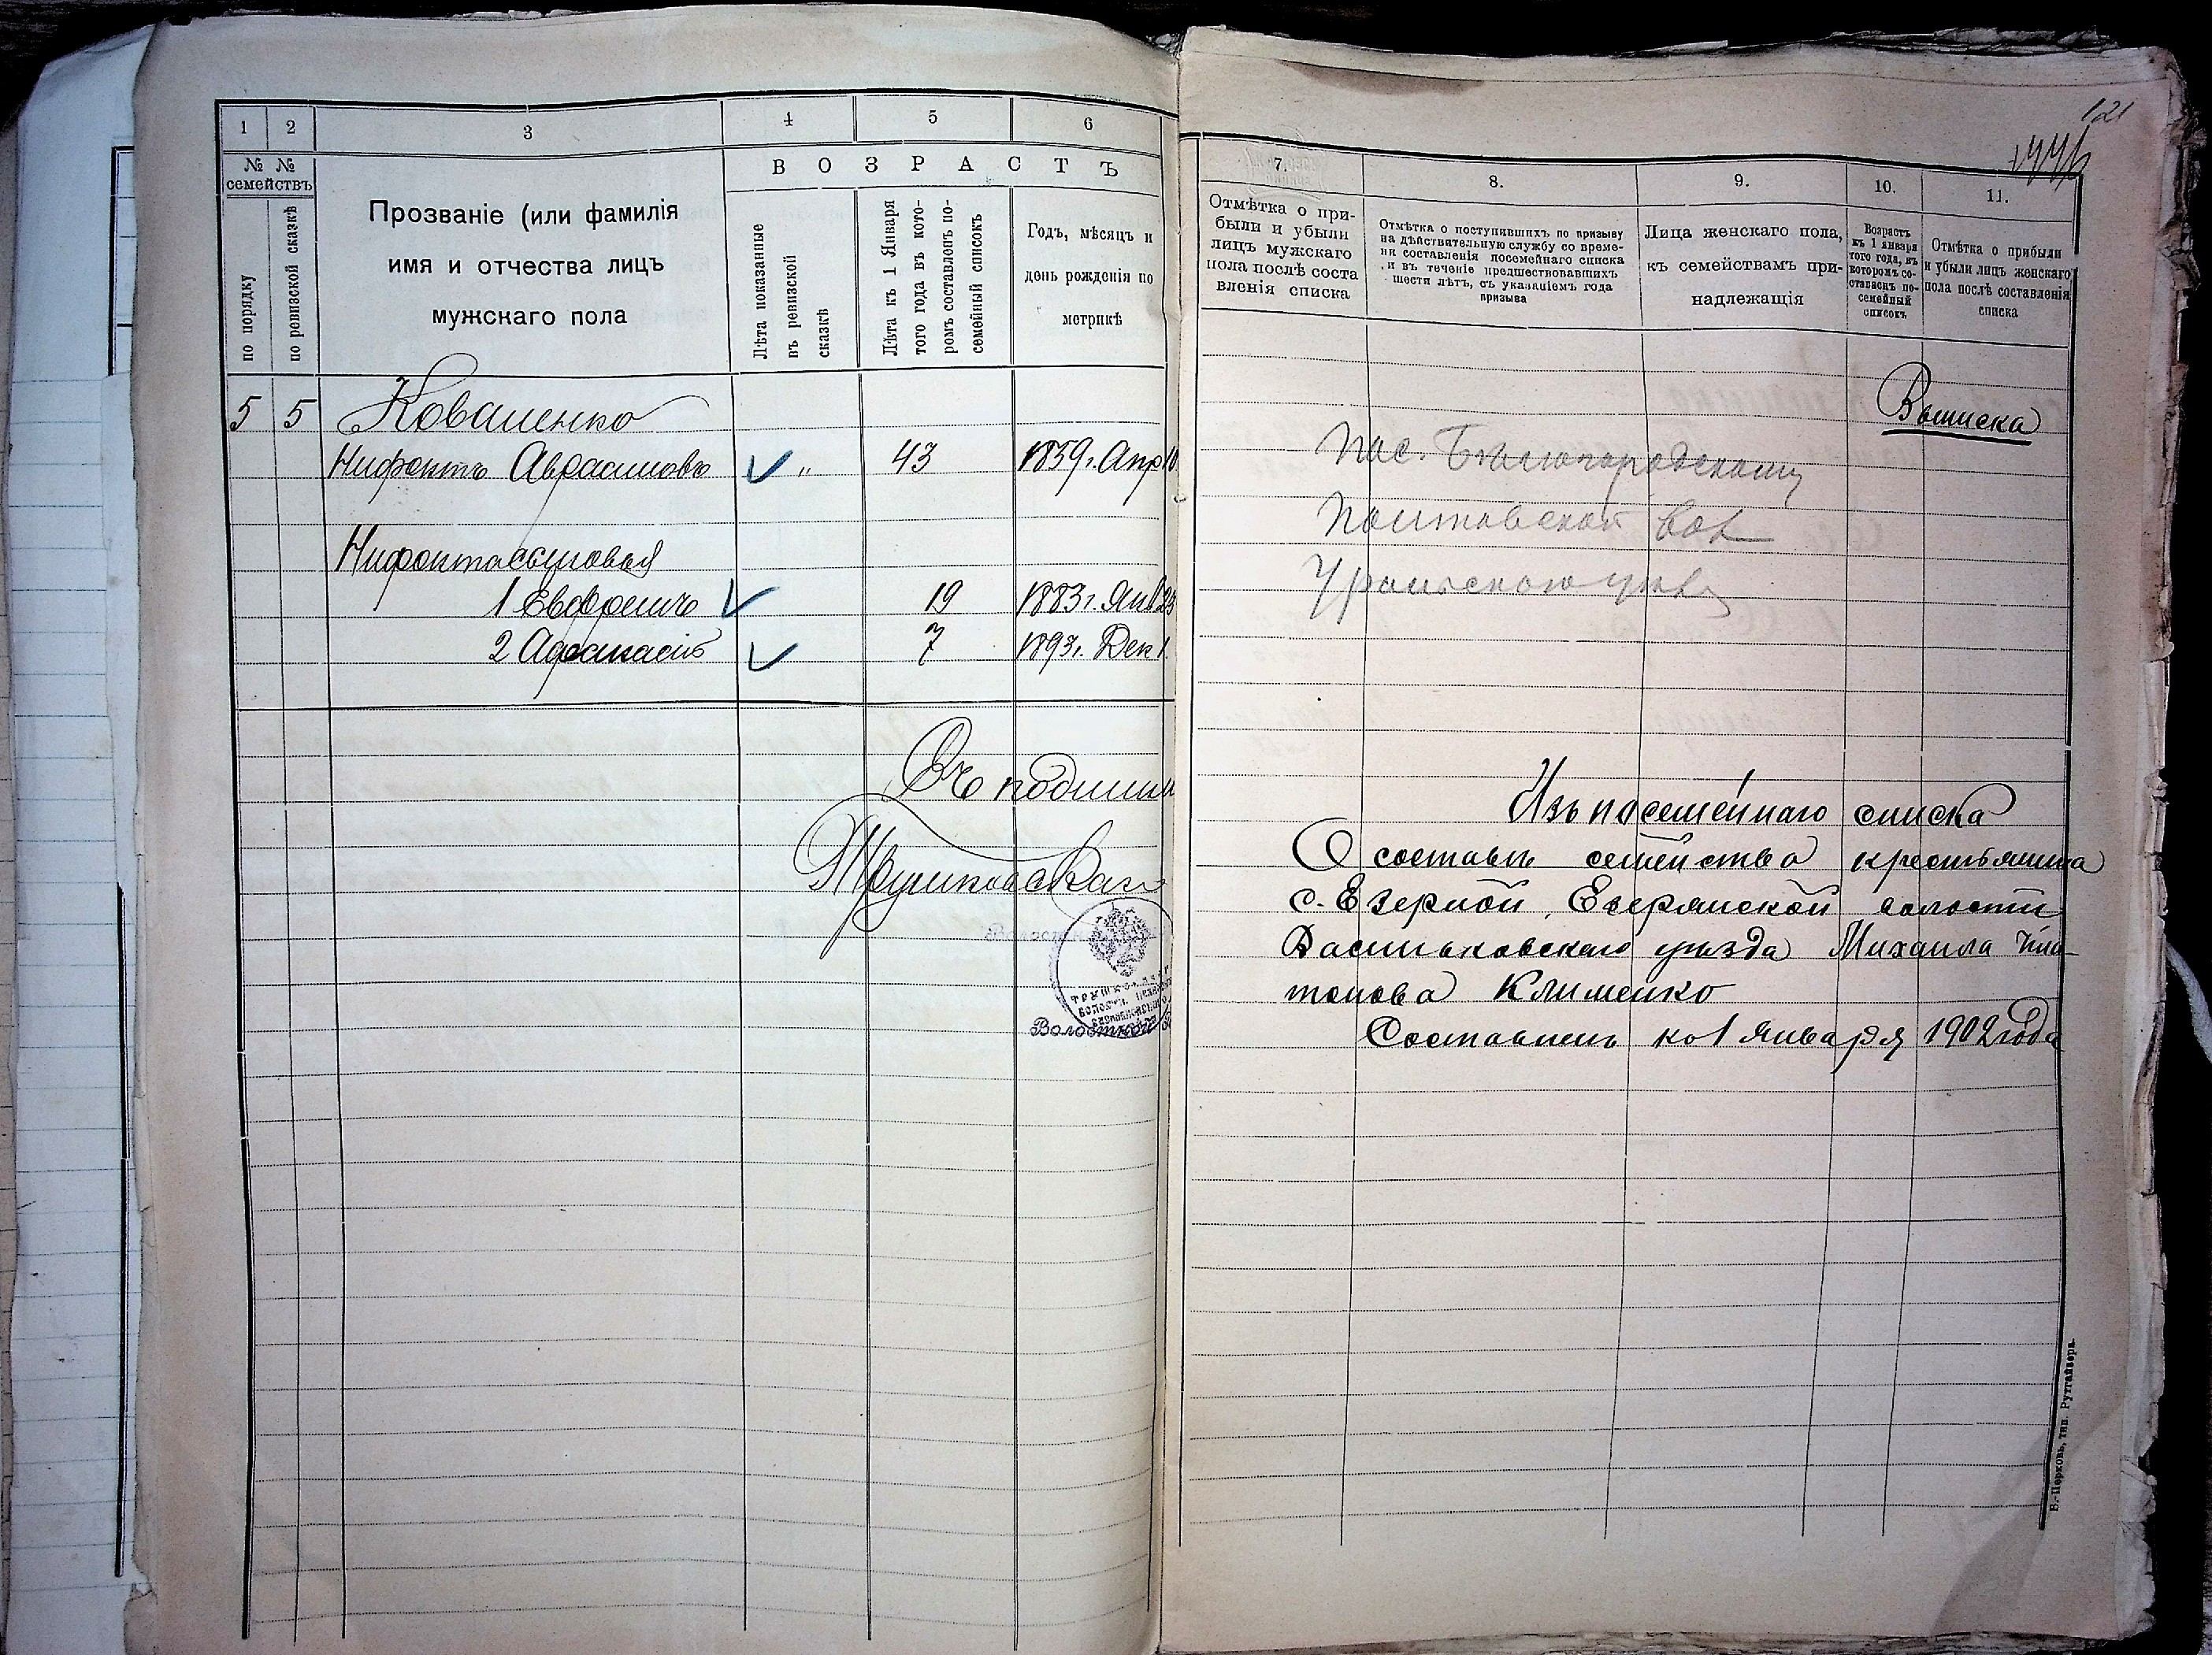 1 2 3 4 5 6
№ № семействъ
по порядку
по ревизской сказкѣ
Прозваніе (или фамилія
имя и отчества лицъ
мужскаго пола
ВОЗРАСТЪ
Лѣта показанные
въ ревизской
сказкѣ
Лѣта къ 1 Января
того года въ кото-
ромъ составленъ по-
семейный списокъ
Годъ, мѣсяцъ и
день рожденія по
метрикѣ
5 5 Коваленко
Нифонтъ Авраамовъ „ 43 1859 г. Апр 10
Нифонта сыновья
1 Евфремъ 19 1883 г. Янв 23
2 Афанасій 7 1893 г. Дек 1.
Съ подлин
Трушковскаго
Волостной
121
7. 8. 9. 10. 11.
Отмѣтка о при-
были и убыли
лицъ мужскаго
пола послѣ соста
вленія списка
Отмѣтка о поступавшихъ по призыву
на дѣйствительную службу со време-
ни составленія посемейнаго списка
и въ теченіе предшествовавшихъ
шести лѣтъ, съ указаніемъ года
призыва
Лица женскаго пола,
къ семействамъ при-
надлежащія
Возрастъ
къ 1 января
того года, въ
которомъ со-
ставленъ по-
семейный
списокъ
Отмѣтка о прибыли
и убыли лицъ женскаго
пола послѣ составленія
списка
Выписка
Пос. Бѣлогородскому
Полтавской вол
Уральского уѣзд
Изъ посемейнаго списка
О составѣ семейства крестьянина
с. Езерной, Езерянской волости
Васильковскаго уѣзда Михаила Пла-
тонова Клименко
Составленъ к 1 Января 1902 года
Б.-Церковь, тип. Рутгайзера.